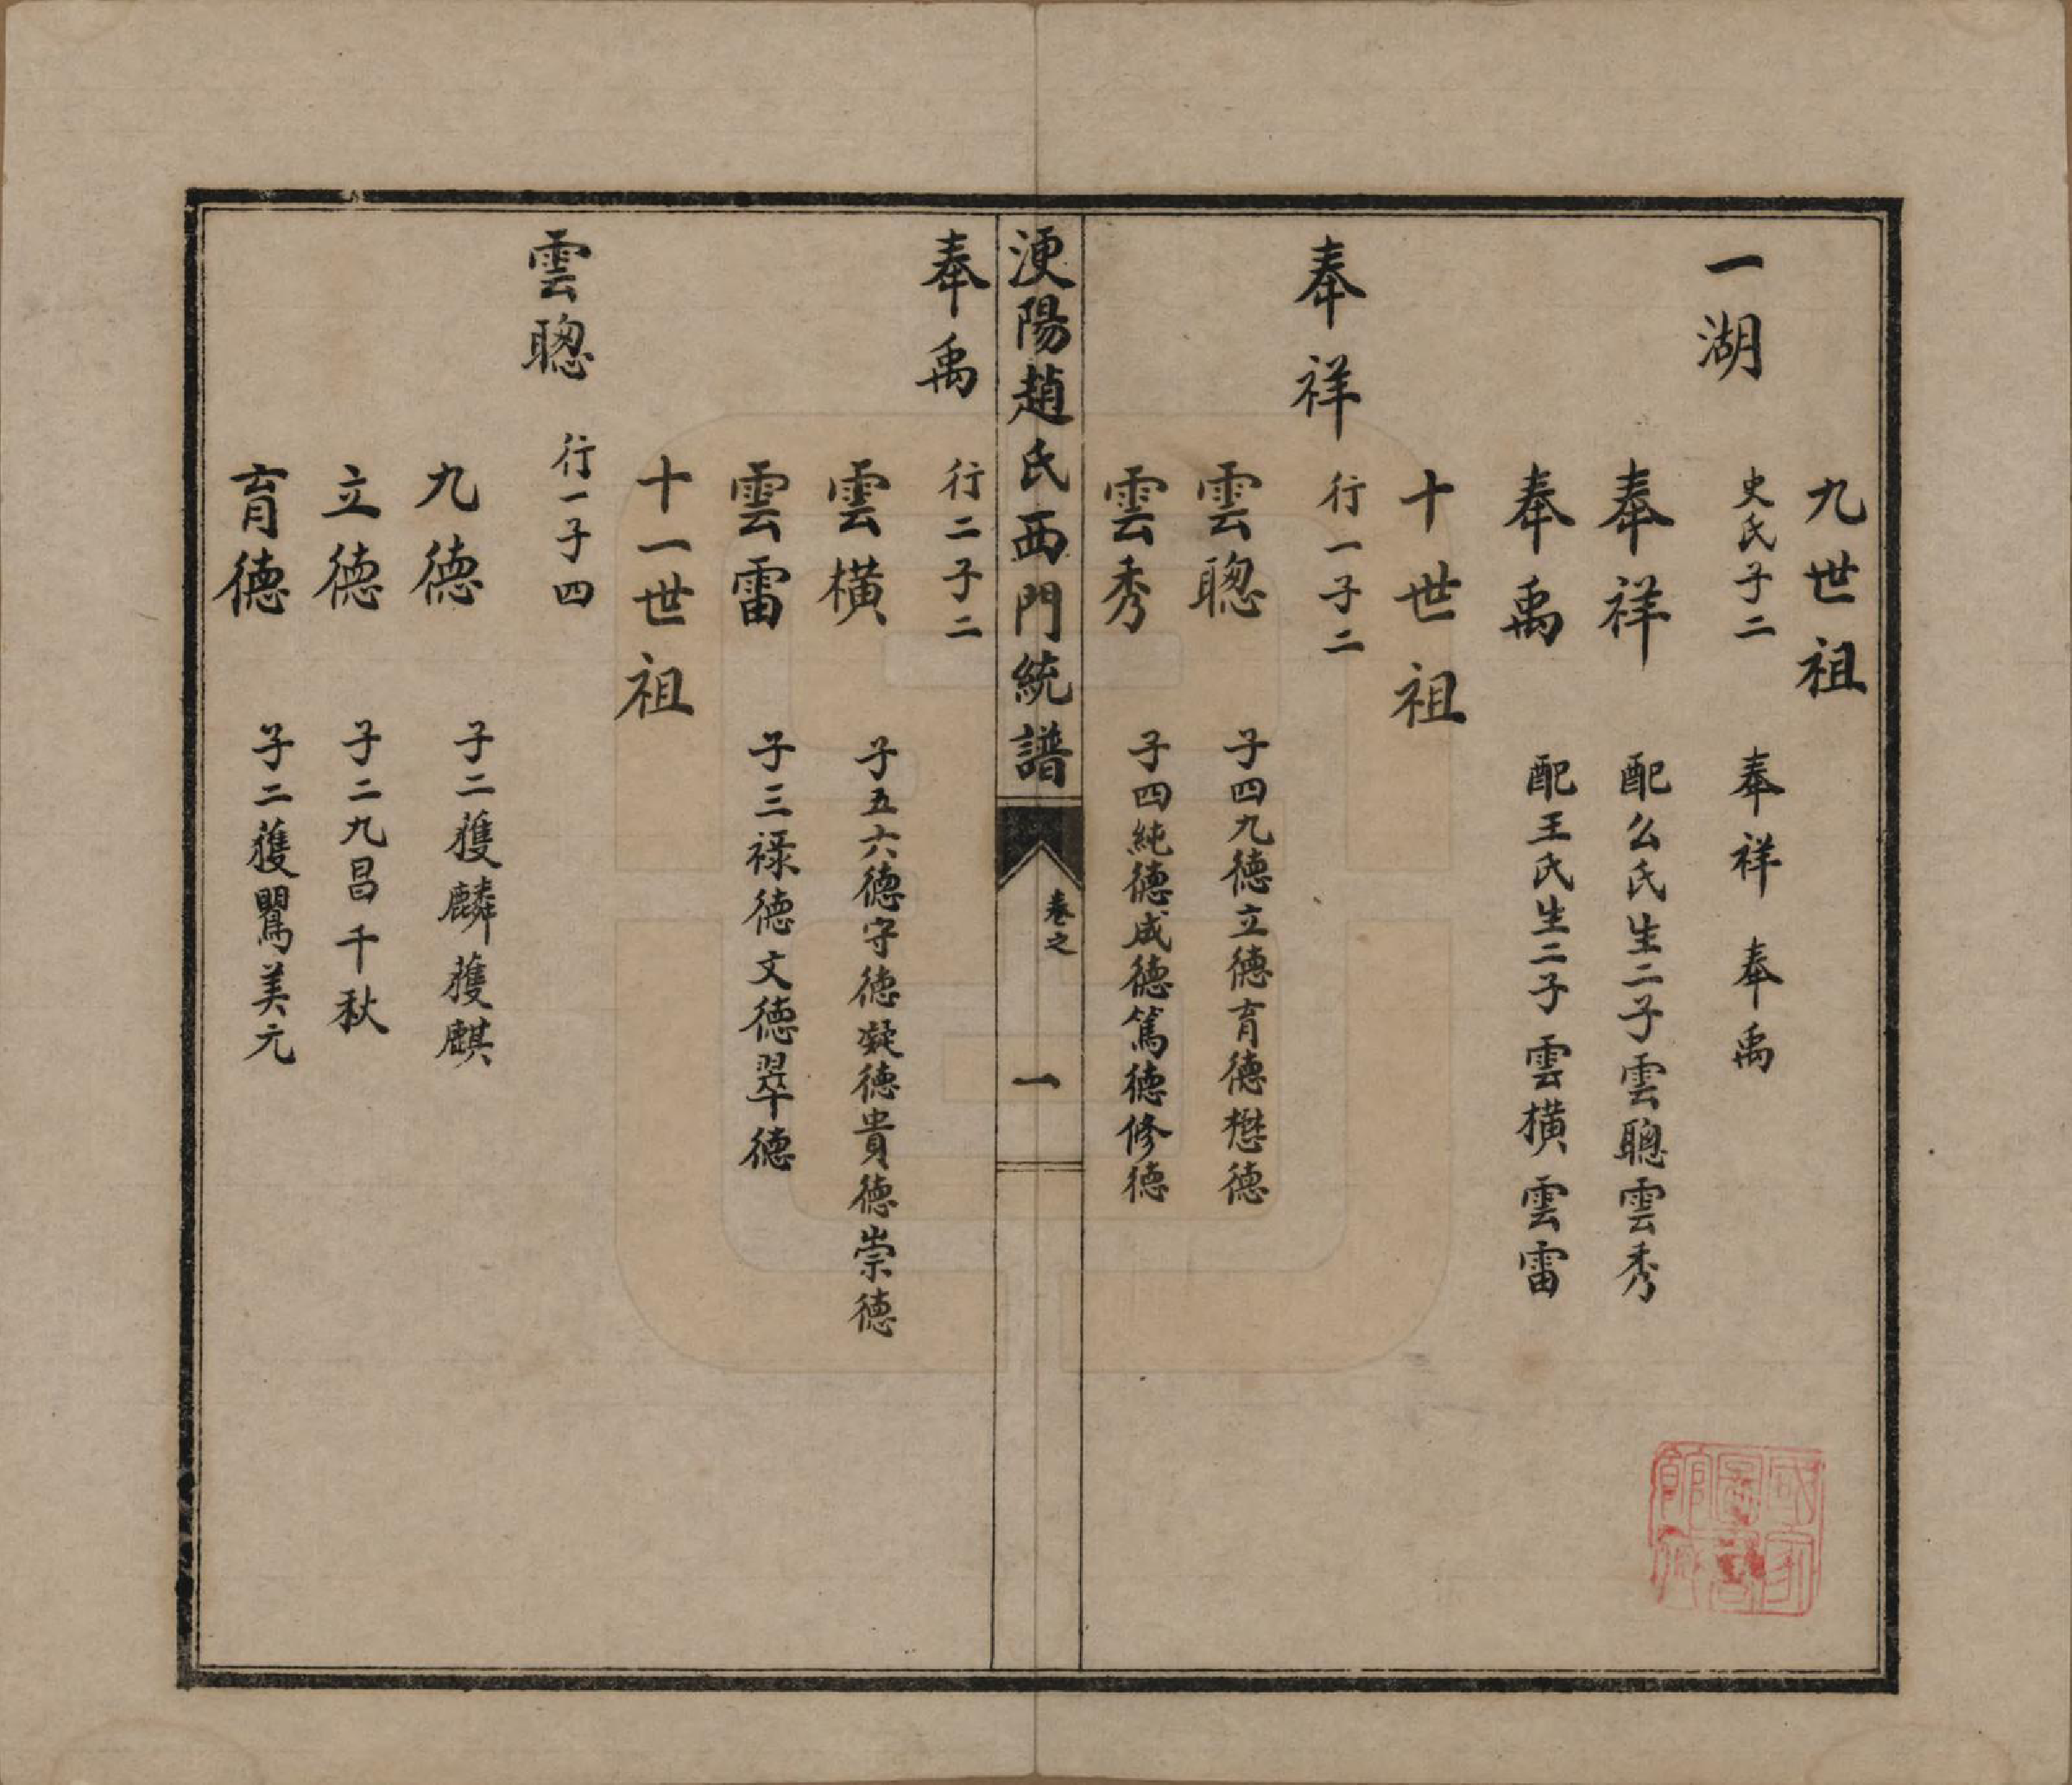 九世祖
一湖
史氏子二　奉祥　奉禹
奉祥　配公氏生二子雲聰雲秀
奉禹　配王氏生二子雲橫雲雷
十世祖
奉祥　行一子二
雲聰　子四九德立德育德懋德
雲秀　子四純德成德篤德修德
浭陽趙氏西門統譜　卷之　一
奉禹　行二子二
雲橫　子五六德守德凝德貴德崇德
雲雷　子三祿德文德翠德
十一世祖
雲聰　行一子四
九德　子二獲麟獲麒
立德　子二九昌千秋
育德　子二獲鸎美元
國家圖書館藏